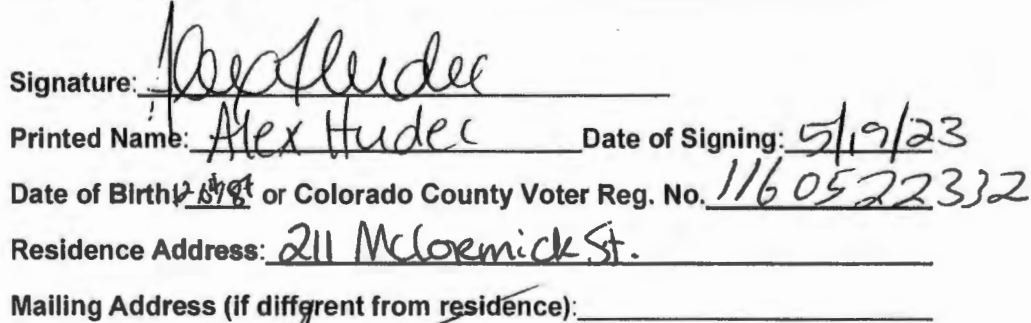 Signature: Alex Hudec
Printed Name: Alex Hudec Date of Signing: 5/19/23
Date of Birth or Colorado County Voter Reg. No. 1160522332
Residence Address: 211 McCormick St.
Mailing Address (if different from residence):